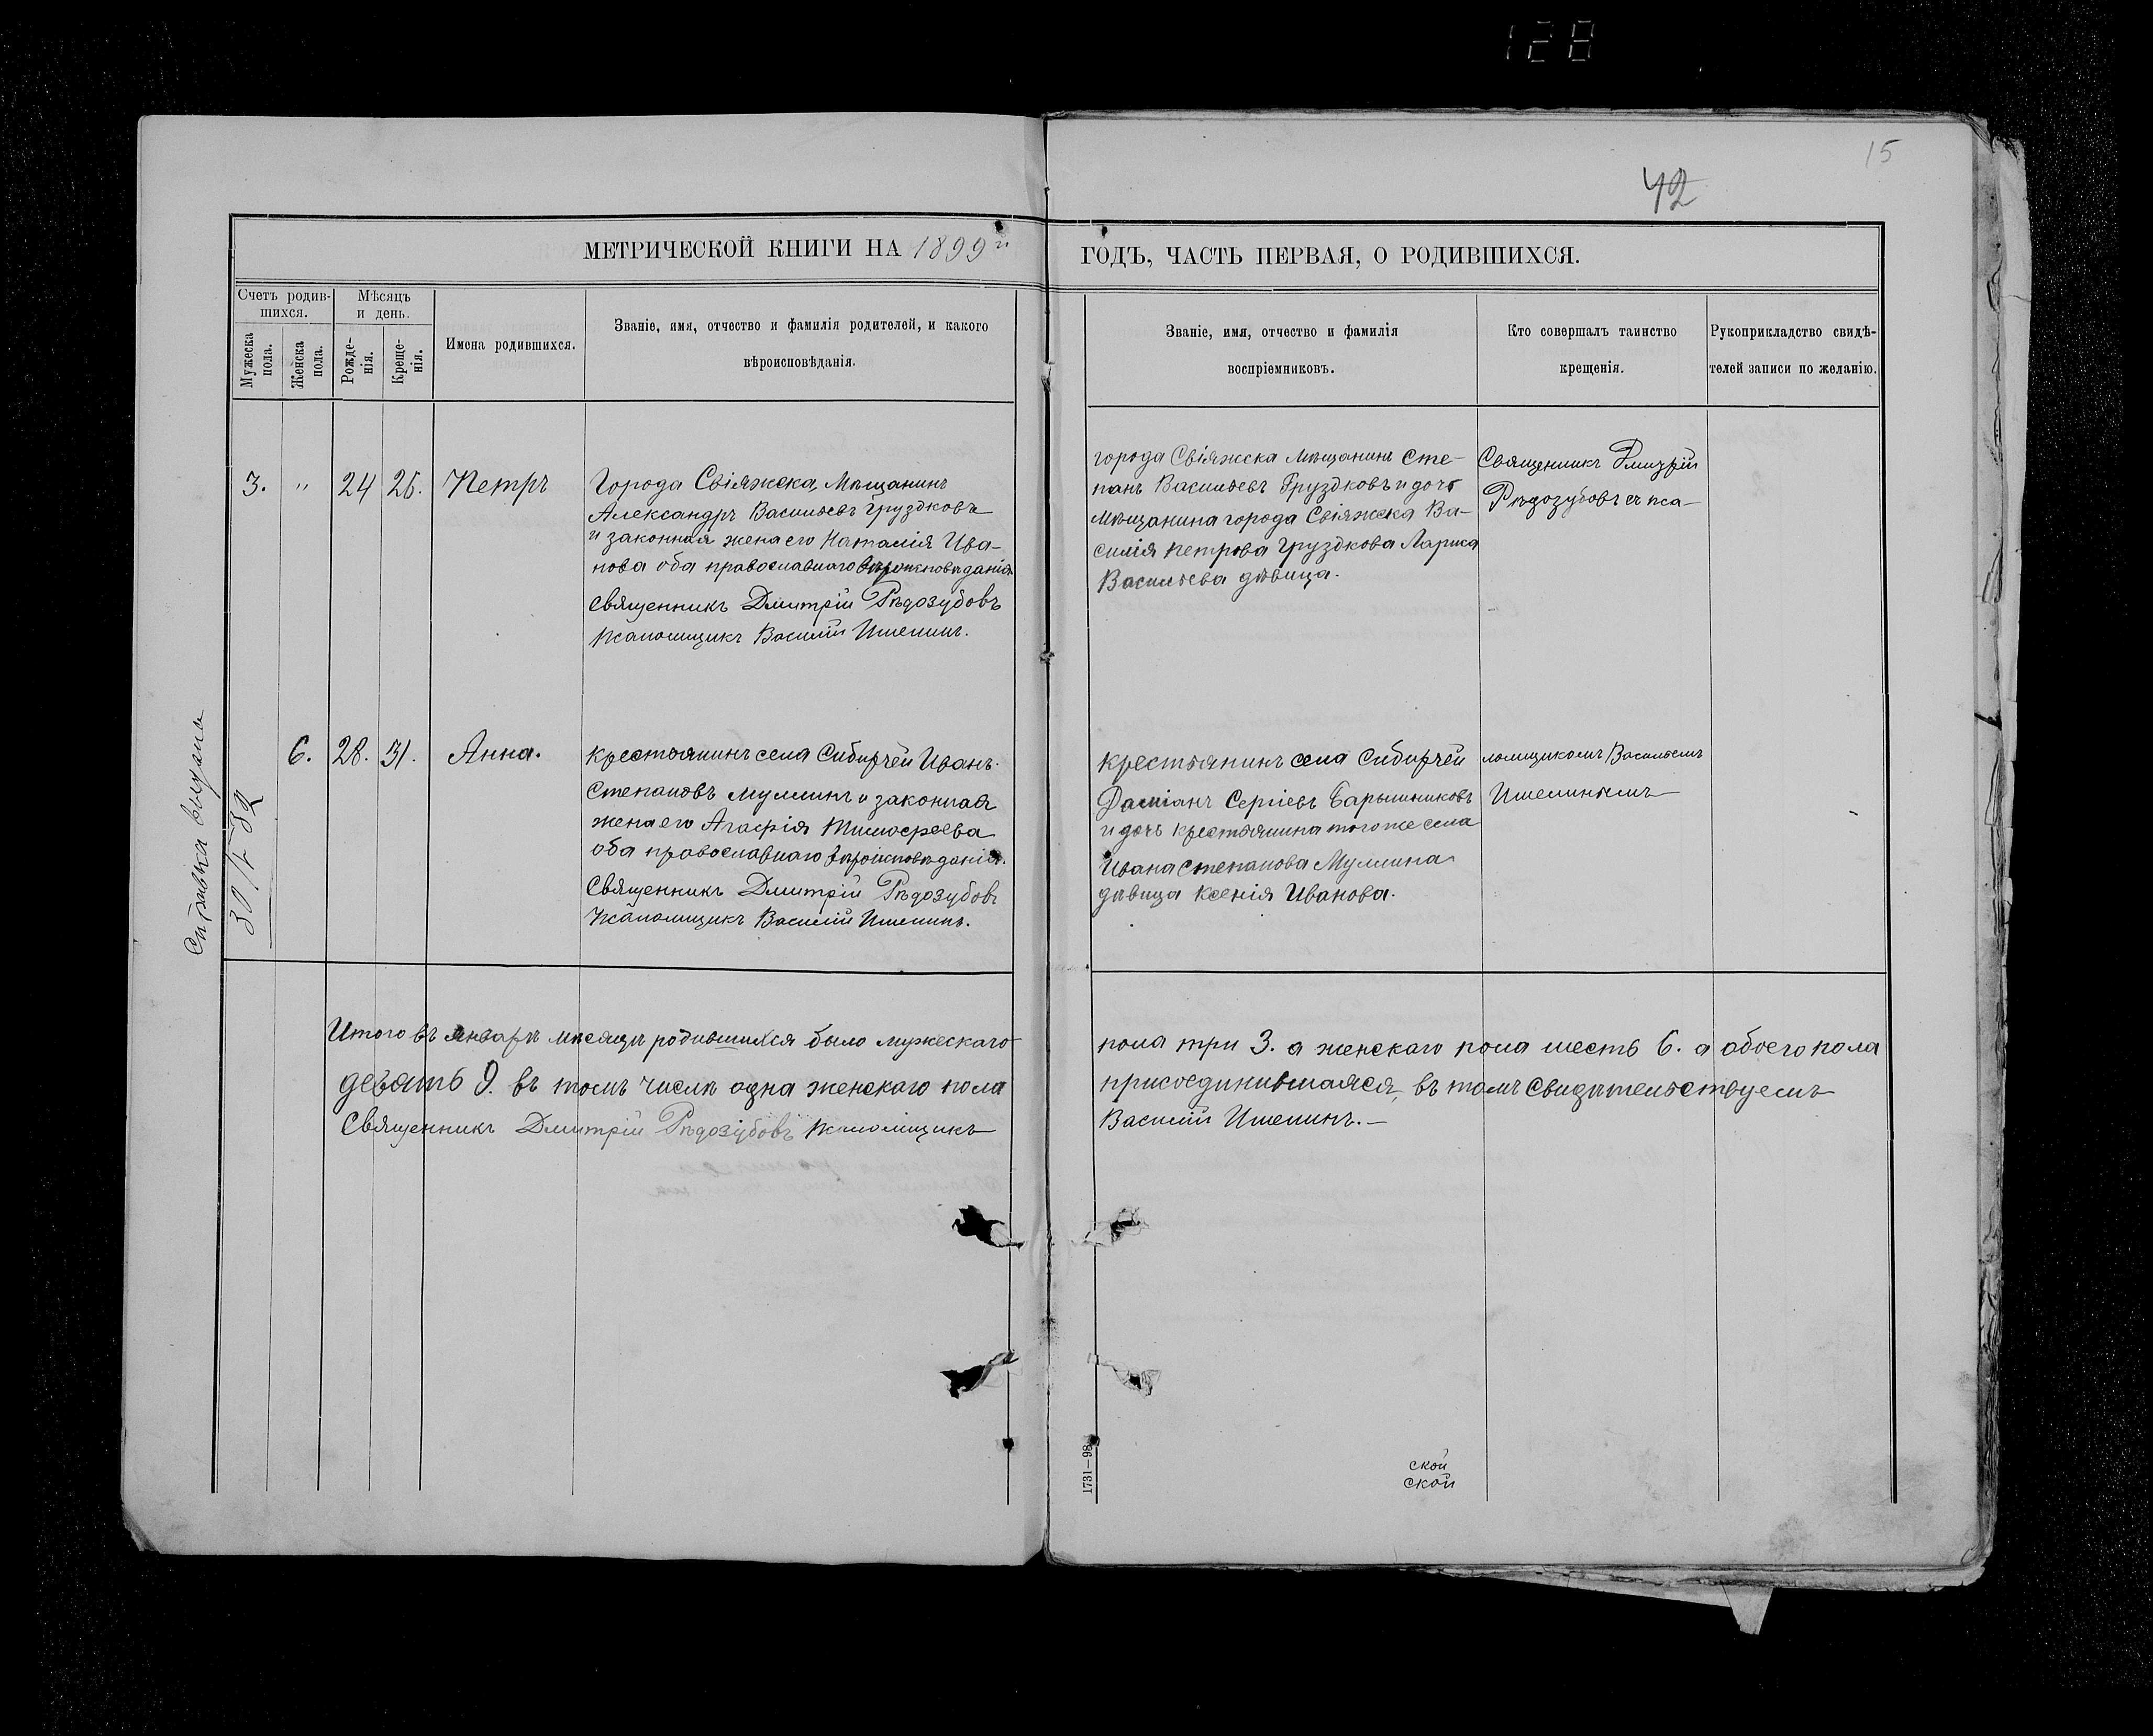 128
15
42
МЕТРИЧЕСКОЙ КНИГИ НА 1899й ГОДЪ, ЧАСТЬ ПЕРВАЯ, О РОДИВШИХСЯ.
Счетъ родив-
шихся.
Мужеска
пола.
Женска
пола.
Мѣсяцъ
и день.
Рожде-
нія.
Креще-
нія.
Имена родившихся.
Званіе, имя, отчество и фамилія родителей, и какого
вѣроисповѣданія.
Званіе, имя, отчество и фамилія
воспріемниковъ.
Кто совершалъ таинство
крещенія.
Рукоприкладство свидѣ-
телей записи по желанію.
3. " 24 26. Петръ
Города Свіяжска, Мѣщанинъ
Александръ Васильевъ Груздковъ
и законная жена его Наталія Ива-
нова оба православнаго вѣроисповѣданія
священникъ Дмитрій Рѣдозубовъ
Псаломщикъ Василій Ишенинъ.
города Свіяжска Мѣщанинъ Сте-
панъ Васильевъ Груздковъ и дочь
Мѣщанина города Свіяжска Ва-
силія Петрова Груздкова Лариса
Васильева дѣвица.
Священникъ Дмитрій
Рѣдозубовъ съ пса-
6. 28. 31. Анна.
крестьянинъ села Сибирчей Иванъ
Степановъ Муллинъ и законная
жена его Агафія Тимофеева
оба православнаго вѣроисповѣданія.
Священникъ Дмитрій Рѣдозубовъ
Псаломщикъ Василій Ишенинъ.
крестьянинъ села Сибирчей
Даміанъ Сергіевъ Барышниковъ
и дочь крестьянина того же села
Ивана Степанова Муллина
дѣвица Ксенія Иванова.
ломщикомъ Васильемъ
Ишенинымъ
Справка выдана
30/I-82
Итого въ январѣ мѣсяцѣ родившихся было мужескаго пола три 3. а женскаго пола шесть 6. а обоего пола
девять 9. въ томъ числѣ одна женскаго пола присоединившаяся, въ томъ свидѣтельствуемъ
Священникъ Дмитрій Рѣдозубовъ Псаломщикъ Василій Ишенинъ.
1731—98
ской
ской